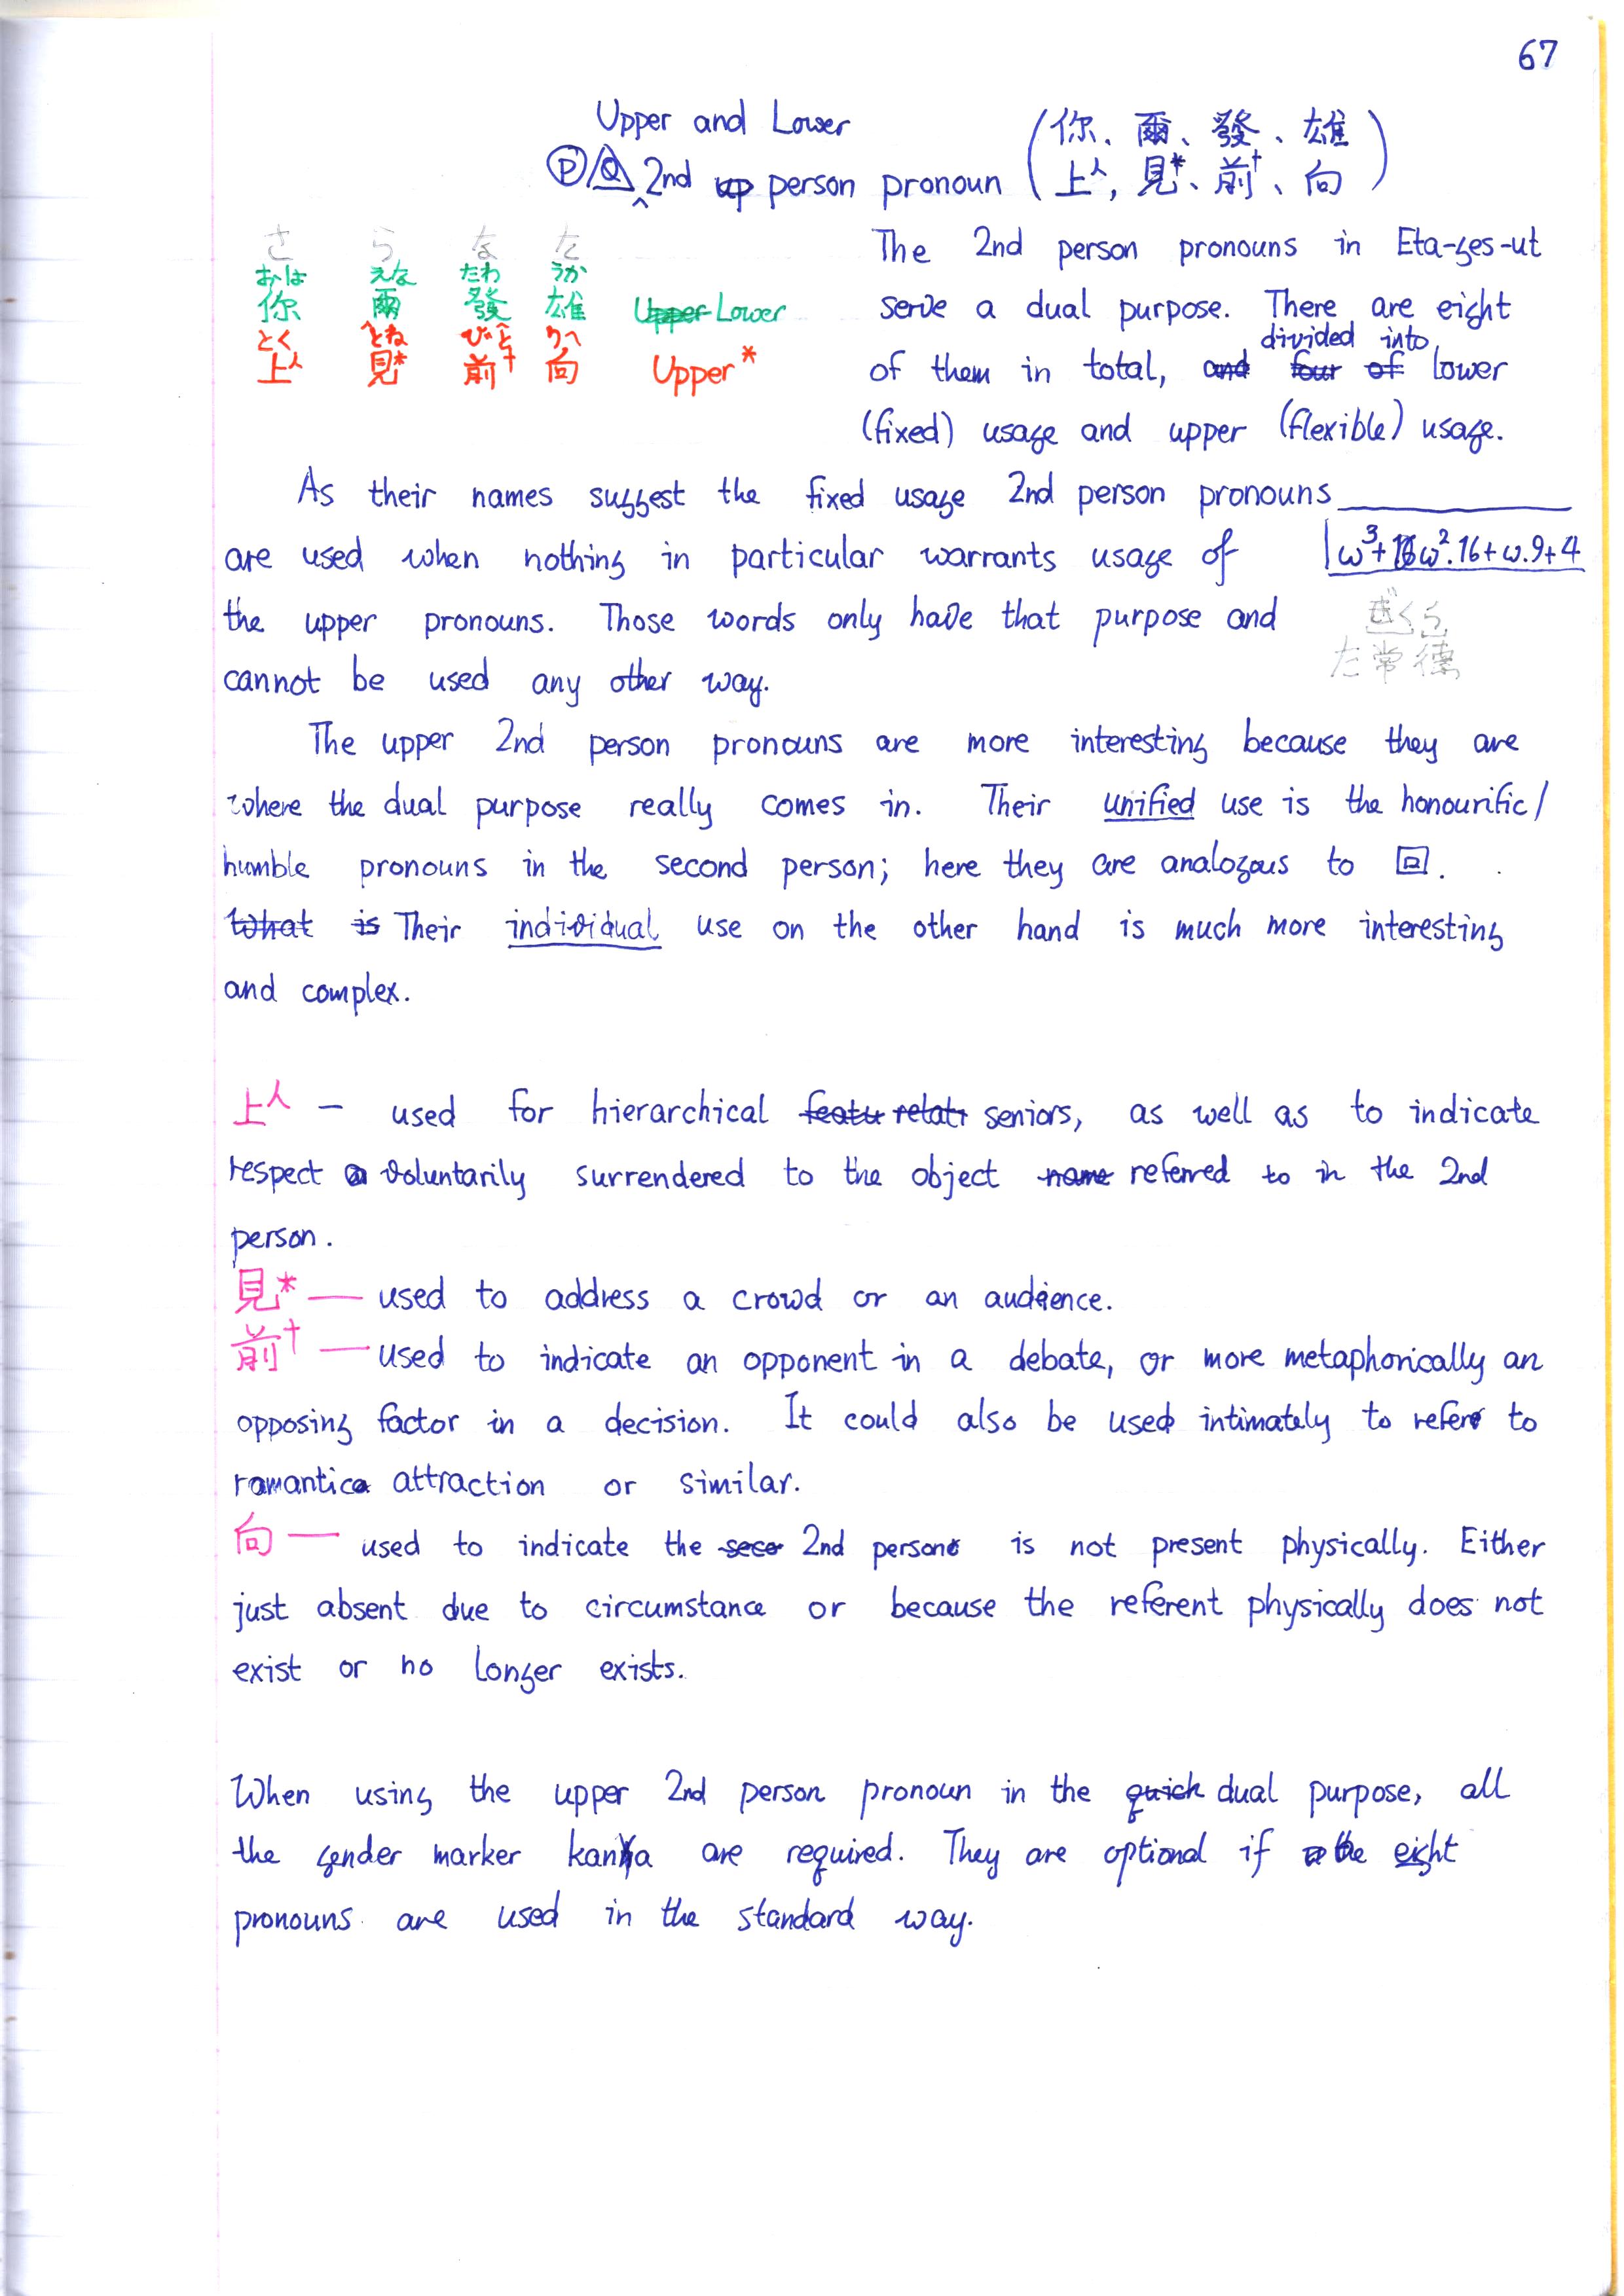 67
Upper and Lower
Ⓟ/Q 2nd person pronoun
(你、爾、發、雄
上人, 見*、前†、向)
さ ら な た
おは えな たわ うか
你 爾 發 雄 Lower
とく とね びと りへ
上人 見* 前† 向 Upper*
The 2nd person pronouns in Eta-ges-ut
serve a dual purpose. There are eight
of them in total, divided into lower
(fixed) usage and upper (flexible) usage.
As their names suggest the fixed usage 2nd person pronouns
are used when nothing in particular warrants usage of
ω³+ω².16+ω.9+4
the upper pronouns. Those words only have that purpose and
くら
左常德
cannot be used any other way.
The upper 2nd person pronouns are more interesting because they are
where the dual purpose really comes in. Their unified use is the honourific/
humble pronouns in the second person; here they are analogous to 回.
What is Their individual use on the other hand is much more interesting
and complex.
上人 – used for hierarchical featu relati seniors, as well as to indicate
respect voluntarily surrendered to the object name referred to in the 2nd
person.
見* — used to address a crowd or an audience.
前† — used to indicate an opponent in a debate, or more metaphorically an
opposing factor in a decision. It could also be used intimately to refer to
romantic attraction or similar.
向 — used to indicate the seco 2nd person is not present physically. Either
just absent due to circumstance or because the referent physically does not
exist or no longer exists.
When using the upper 2nd person pronoun in the quick dual purpose, all
the gender marker kana are required. They are optional if the eight
pronouns are used in the standard way.